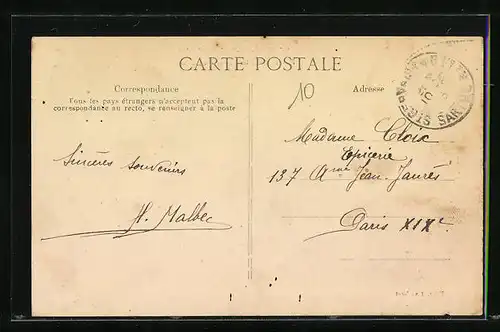 CARTE POSTALE
Correspondance
Tous les pays étrangers n'acceptent pas la
correspondance au recto, se renseigner à la poste
Adresse
10
Sincères souvenirs
H. Malbec
Madame Cloix
Epicerie
137 Avue Jean Jaurès
Paris XIXe